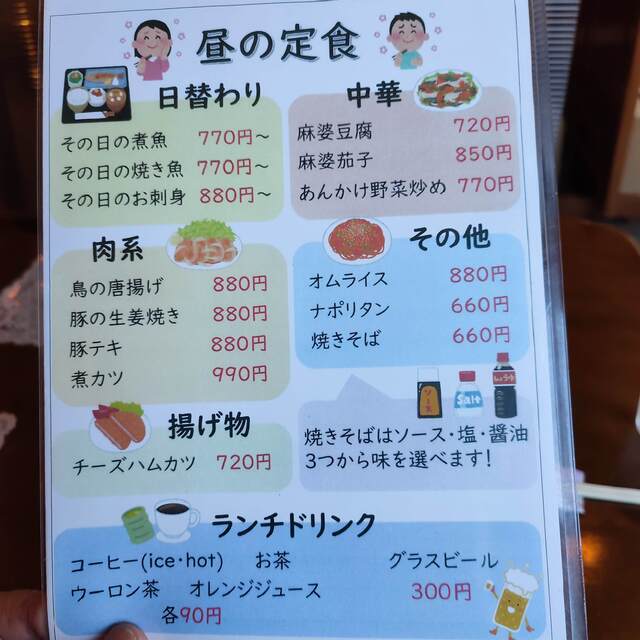 昼の定食
日替わり
その日の煮魚 770円～
その日の焼き魚 770円～
その日のお刺身 880円～
中華
麻婆豆腐 720円
麻婆茄子 850円
あんかけ野菜炒め 770円
肉系
鳥の唐揚げ 880円
豚の生姜焼き 880円
豚テキ 880円
煮カツ 990円
その他
オムライス 880円
ナポリタン 660円
焼きそば 660円
揚げ物
チーズハムカツ 720円
ソース
Salt
しょうゆ
焼きそばはソース・塩・醤油
3つから味を選べます!
ランチドリンク
コーヒー(ice・hot) お茶
ウーロン茶 オレンジジュース
各90円
グラスビール
300円